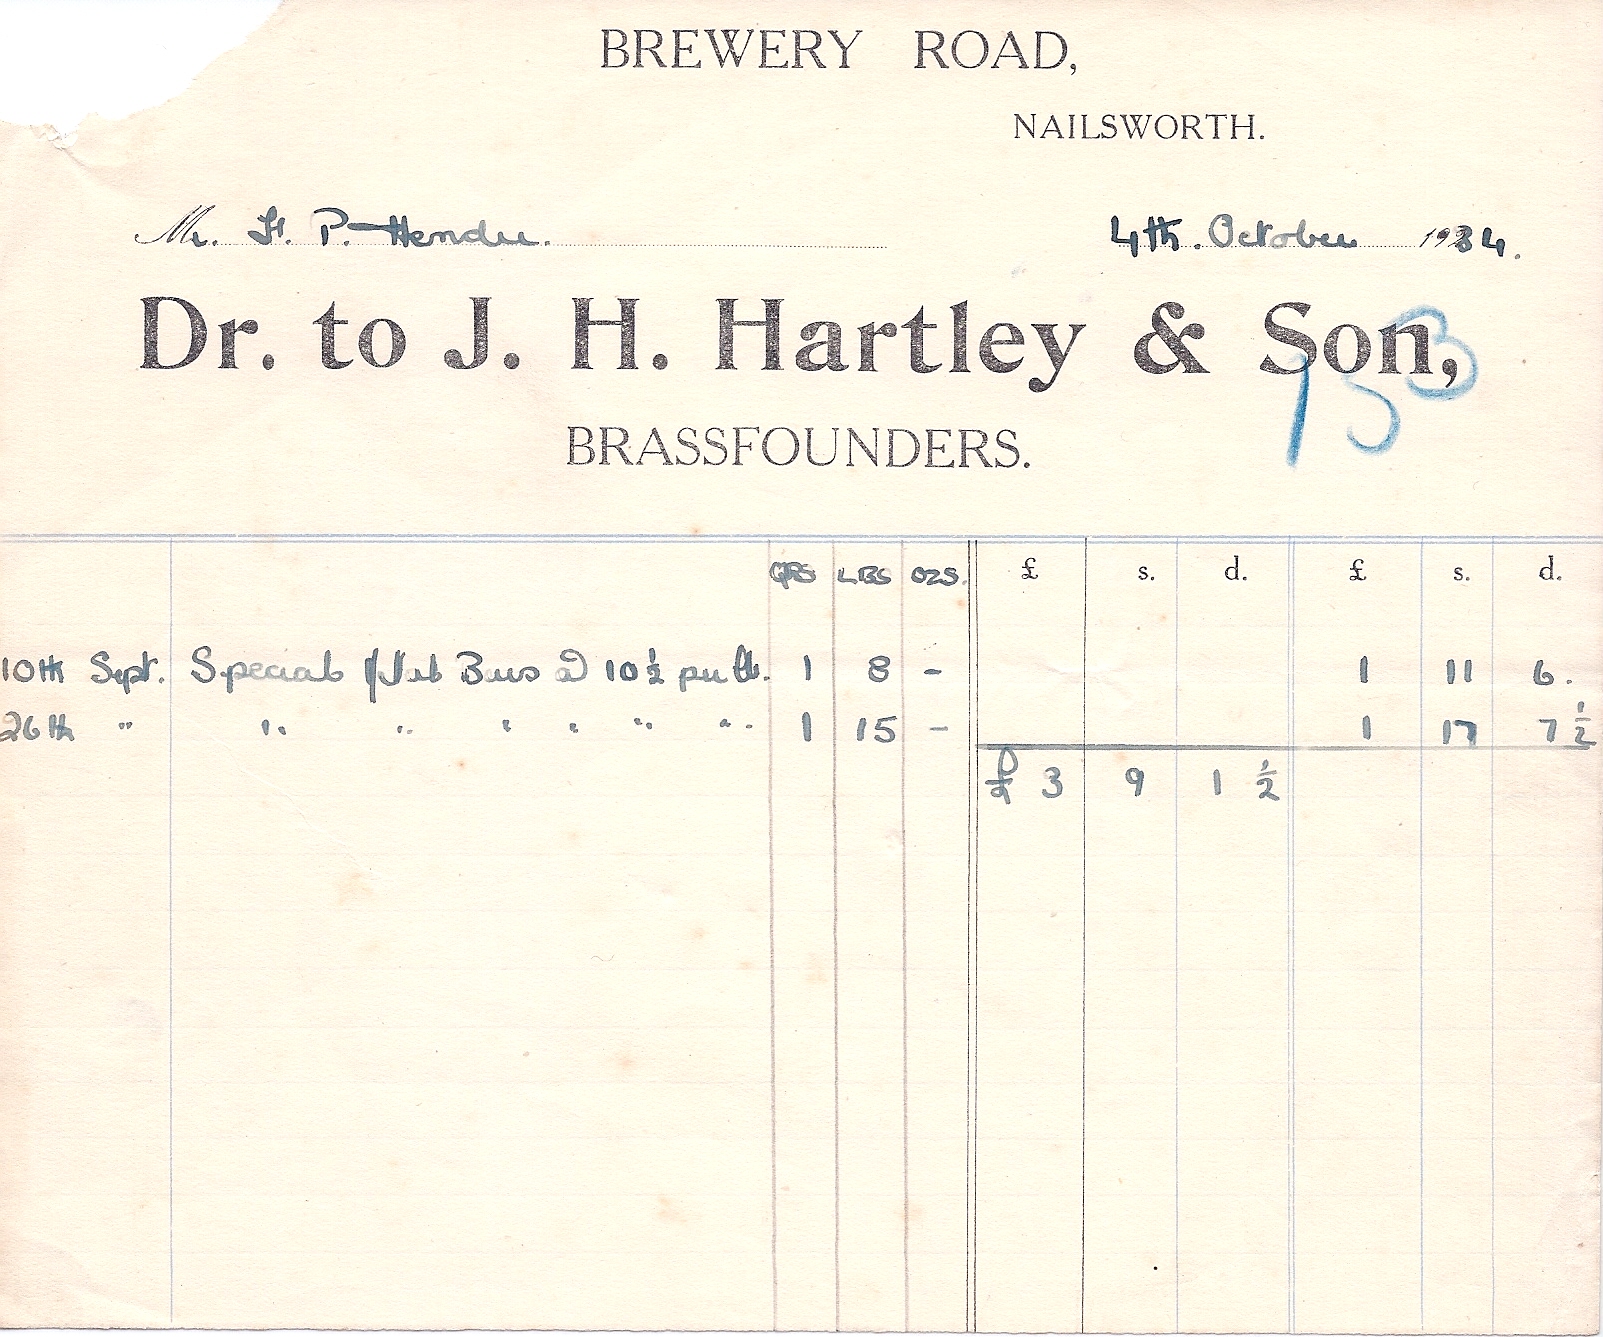 BREWERY ROAD,
NAILSWORTH.
Mr. H. P. 4th. October 1934.
Dr. to J. H. Hartley & Son,
153
BRASSFOUNDERS.
QRS LBS OZS. £ s. d. £ s. d.
10th Sept. Special Bars @ 10½ per lb. 1 8 - 1 11 6.
26th " " " " " " " 1 15 - 1 17 7½
£ 3 9 1½